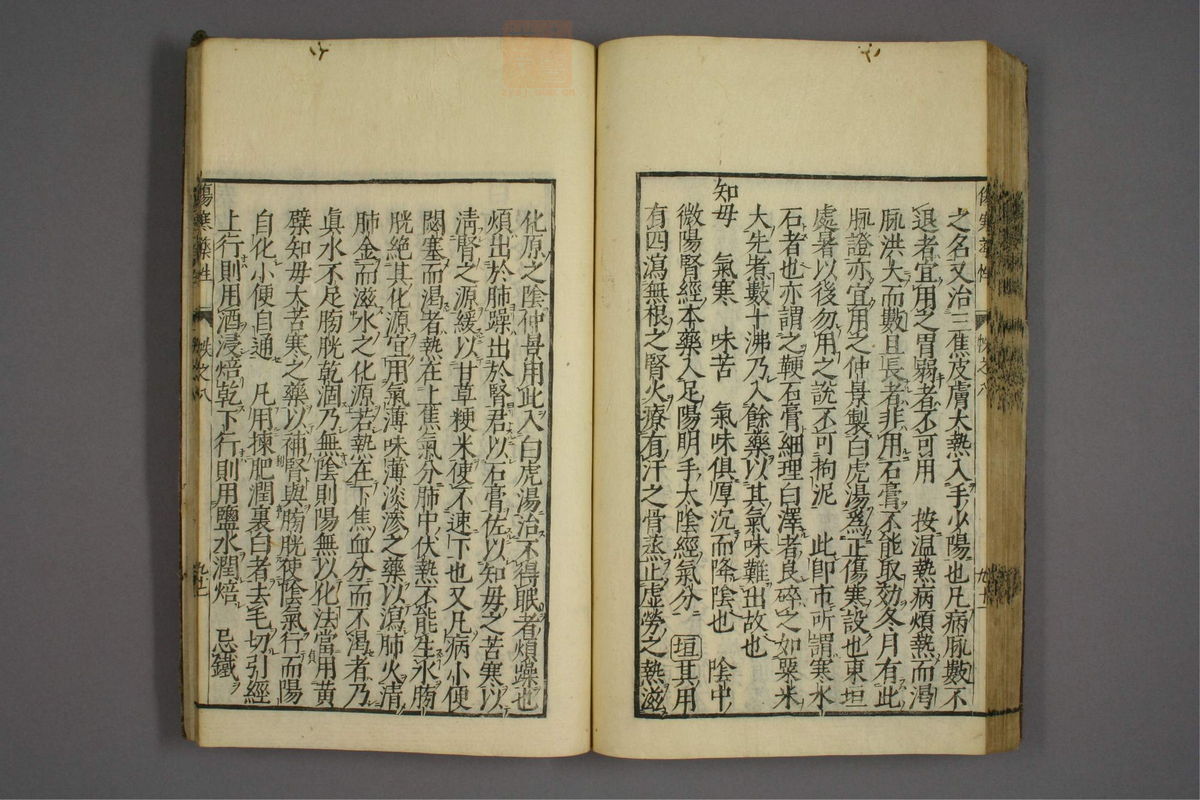 之名又治三焦皮膚大熱入手少陽也凡病脈數不
退者宜用之胃弱者不可用　按温熱病煩熱而渴
脈洪大而數且長者非用石膏不能取効冬月有此
脈證亦宜用之仲景製白虎湯爲正傷寒設也東垣
處暑以後勿用之說不可拘泥　此卽市所謂寒水
石者也亦謂之鞕石膏細理白澤者良碎之如粟米
大先煮數十沸乃入餘藥以其氣味難出故也
知毋　氣寒　味苦　氣味俱厚沉而降陰也　陰中
微陽腎經本藥入足陽明手太陰經氣分　垣其用
有四瀉無根之腎火療有汗之骨蒸止虛勞之熱滋
化原之陰仲景用此入白虎湯治不得眠者煩躁也
煩出於肺躁出於腎君以石膏佐以知毋之苦寒以
淸腎之源緩以甘草粳米使不速下也又凡病小便
閟塞而渴者熱在上焦氣分肺中伏熱不能生水膀
胱絕其化源宜用氣薄味薄淡滲之藥以瀉肺火清
肺金而滋水之化源若熱在下焦血分而不渴者乃
眞水不足膀胱乾涸乃無陰則陽無以化法當用黃
檗知毋大苦寒之藥以補腎與膀胱使陰氣行而陽
自化小便自通　凡用揀肥潤裏白者去毛切引經
上行則用酒浸焙乾下行則用鹽水潤焙　忌鐵